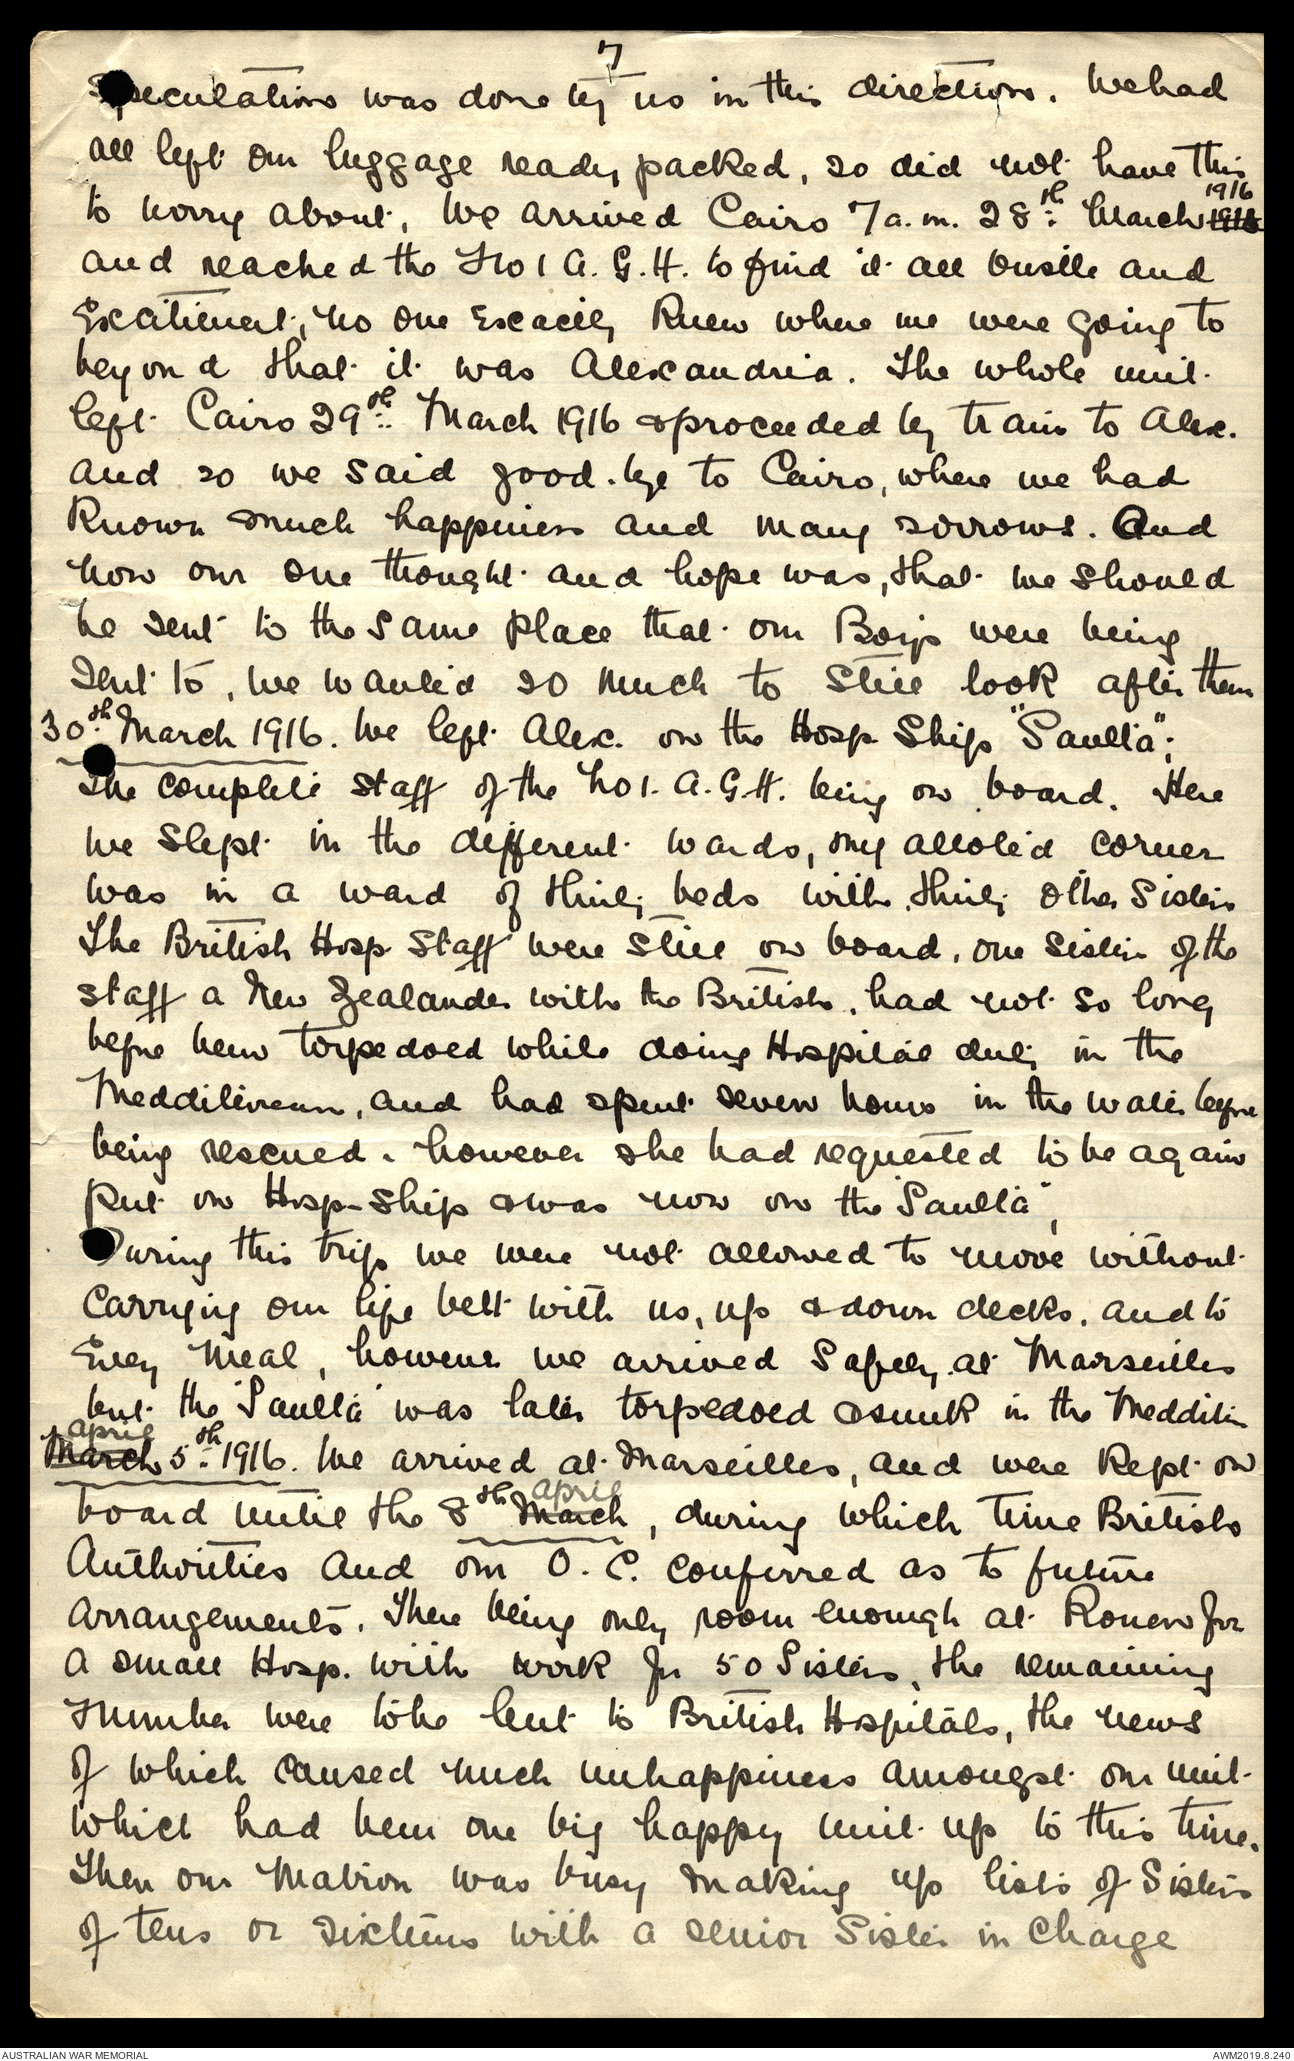 7
Speculations was done by us in this direction. We had
all left our luggage ready packed, so did not have this
to worry about, We arrived Cairo 7 a.m. 28th March 1916
and reached the No 1 A.G.H. to find it all bustle and
Excitement, no one Exactly Knew where we were going to
beyond that it was Alexandria. The whole unit
left Cairo 29th March 1916 & proceeded by train to Alex.
and so we said good-bye to Cairo, where we had
Known much happiness and many sorrows. And
now our one thought and hope was, that we should
be sent to the same place that our Boys were being
sent to, we wanted so much to still look after them
30th March 1916. We left Alex. on the Hosp Ship "Saulta";
The complete staff of the No 1. A.G.H. being on board. Here
we slept in the different wards, my alloted corner
was in a ward of thirty beds with thirty other Sisters
The British Hosp Staff were still on board, one sister of the
staff a New Zealander with the British, had not so long
before been torpedoed while doing Hospital duty in the
Medditerrean, and had spent seven hours in the water before
being rescued. however she had requested to be again
put on Hosp-Ship & was now on the "Saulta",
During this trip we were not allowed to move without
carrying our life belt with us, up & down decks, and to
Every meal, however we arrived safely at Marseilles
but the "Saulta" was later torpedoed & sunk in the Medditer
April
March 5th 1916. We arrived at Marseilles, and were Kept on
board until the 8th March April, during which time British
Authorities and our O.C. conferred as to future
arrangements. There being only room enough at Rouen for
a small Hosp. with work for 50 Sisters, the remaining
number were to be lent to British Hospitals, the news
of which caused much unhappiness amongst our unit
which had been one big happy unit up to this time.
Then our Matron was busy making up lists of Sisters
of tens or sixteens with a senior Sister in charge
AUSTRALIAN WAR MEMORIAL
AWM2019.8.240